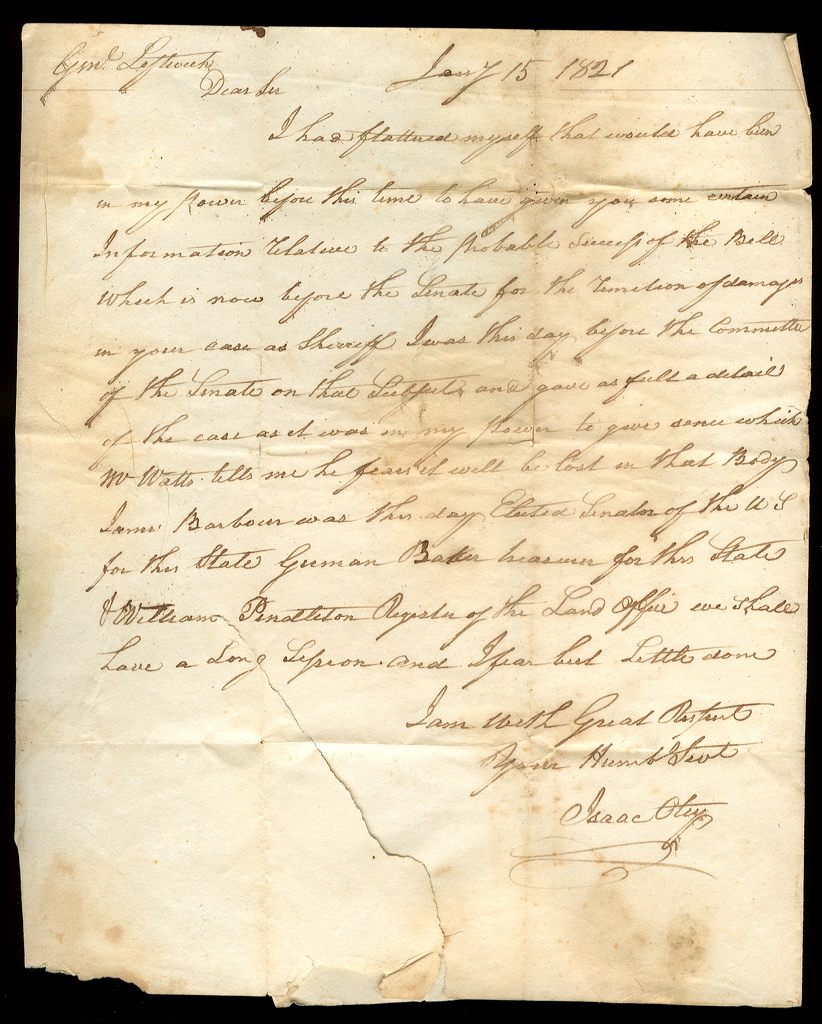 Genl. Leftwich Jany 15 1821
Dear Sir
I had flattered myself that would have been
in my power before this time to have given you some certain
Information relative to the probable Success of the Bill
Which is now before the Senate for the remition of damages
in your case as Sherriff I was this day before the Committee
of the Senate on that Subject and gave as full a detail
of the case as it was in my power to give sence which
Mr Watts tells me he fears it will be lost in that Body
James Barbour was this day Elected Senator of the U S
for this State Jerman Baker treasurer for this State
& William Pendleton Register of the Land Office we shall
have a Long Session and I fear but Little done
I am with Great Respect
Your Humb Servt
Isaac Otey